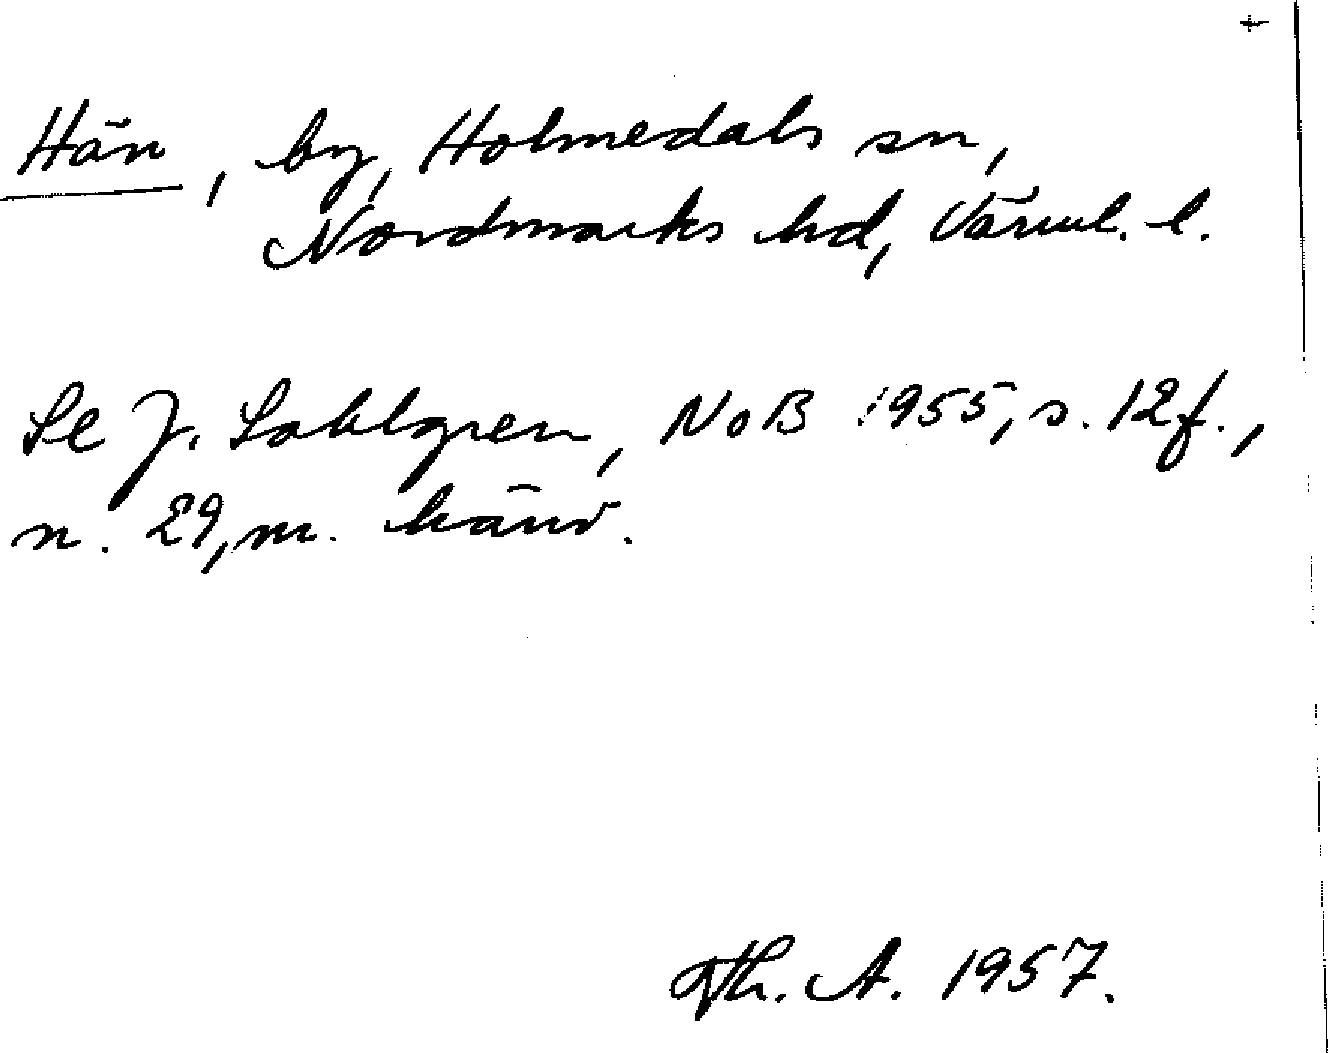 +
Hän, by, Holmedals sn,
Nordmarks hd, Värml. l.
Se J. Sahlgren, NoB 1955, s. 12 f.,
n. 29, m. hänv.
Th. A. 1957.